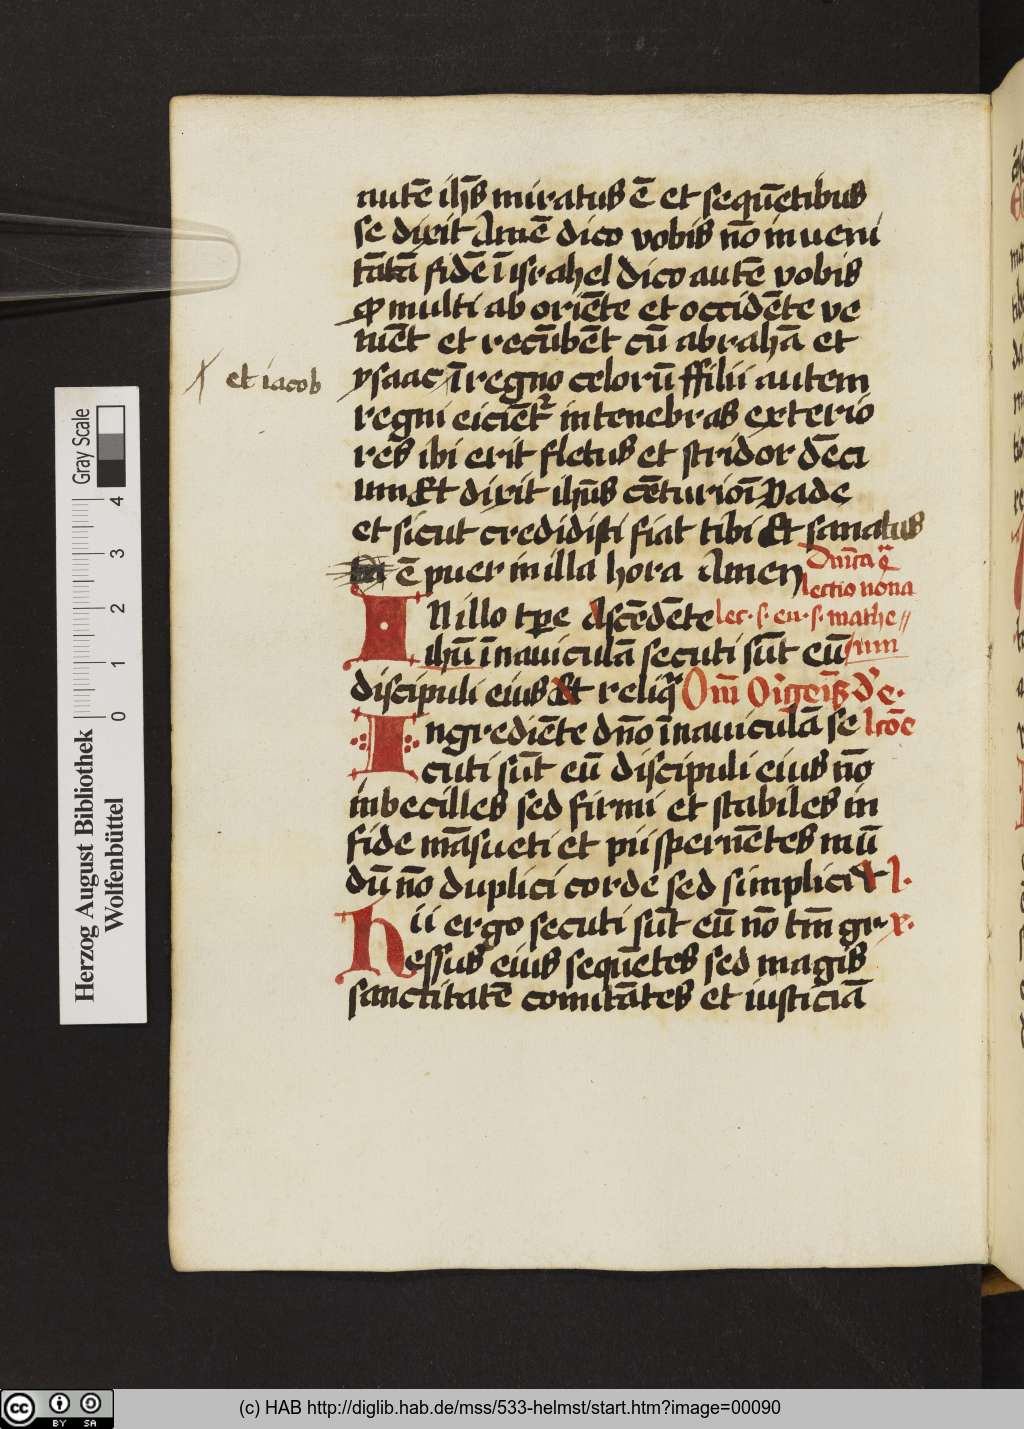 autē ih̄s miratus ē et sequētibus
se dixit Amē dico vobis nō inueni
tātā fidē ī israhel dico autē vobis
ꝙ multi ab oriēte et occidēte ve
niēt et recūbēt cū abrahā et
et iacob
ysaac ī regno celorū ffilii autem
regni eiciēt᷑ in tenebras exterio
res ibi erit fletus et stridor dēci
um Et dixit ih̄us cēturioī Vade
et sicut credidisti fiat tibi Et sanatus
ē puer in illa hora Amen
lectio nona
In illo tꝑe ascēdēte lec. s. eu. s. mathe
um
ih̄ū ī nauiculā secuti sūt eū
discipuli eius Et reliq̄
Ingrediēte dn̄o ī nauiculā se lcōe
cuti sūt eū discipuli eius nō
inbecilles sed firmi et stabiles in
fide māsueti et pii spernētes mū
dū nō duplici corde sed simplici
hii ergo secuti sūt eū nō tm̄ gr
essus eius sequētes sed magis
sanctitatē comitātes et iusticiā
Herzog August Bibliothek
Wolfenbüttel
Gray Scale
0 1 2 3 4
cc BY SA
(c) HAB http://diglib.hab.de/mss/533-helmst/start.htm?image=00090